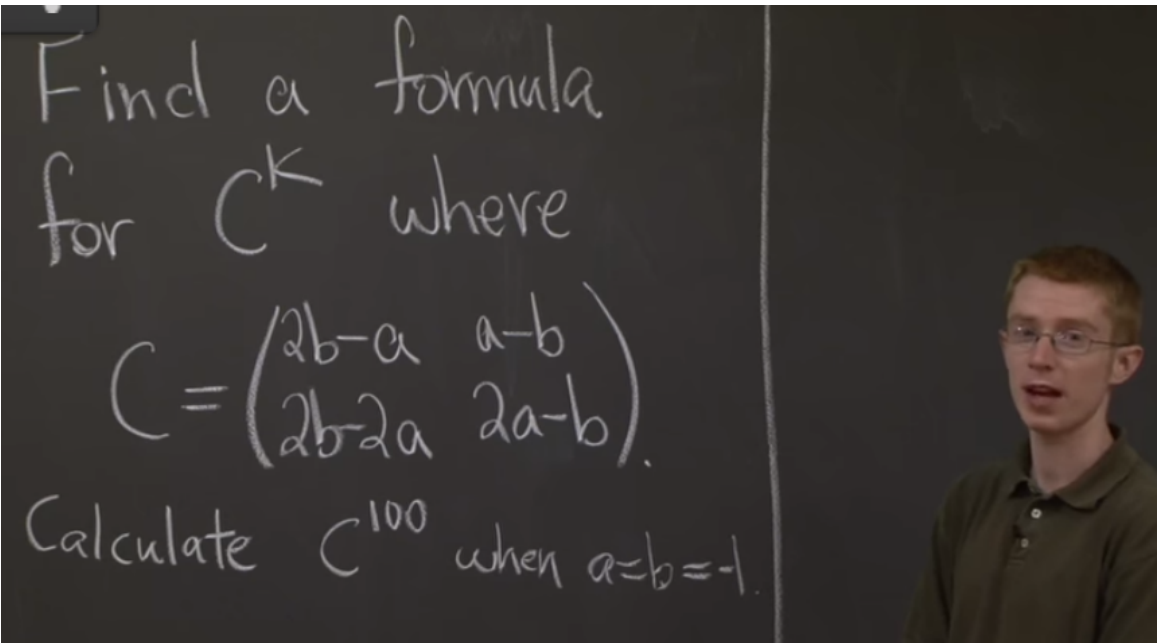 Find a formula
for C^K where
C = (2b-a a-b
2b-2a 2a-b).
Calculate C^100 when a=b=-1.